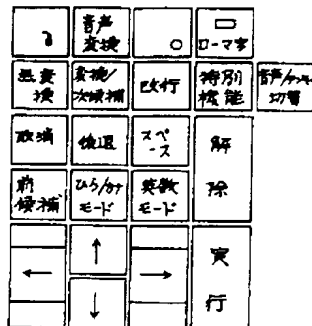 音声
変換
ローマ字
無変
換
変換/
次候補
改行
特別
機能
音声/テンキー
切替
取消
後退
スペ
ース
解
除
前
候補
ひら/カナ
モード
英数
モード
←
↑
↓
→
実
行